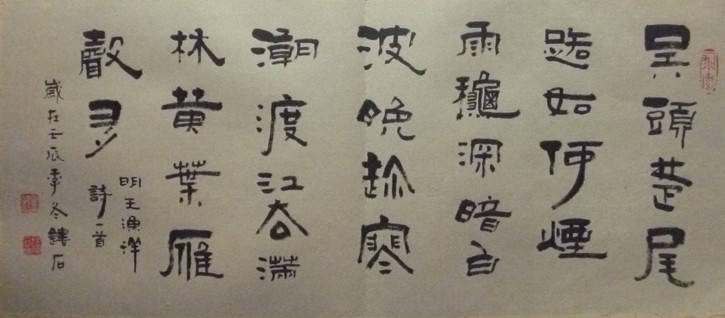 吳頭楚尾
路如何煙
雨穐深暗白
波晚趂寒
潮渡江去滿
林黄葉雁
聲多
明王漁洋
詩一首
歲在壬辰季冬石